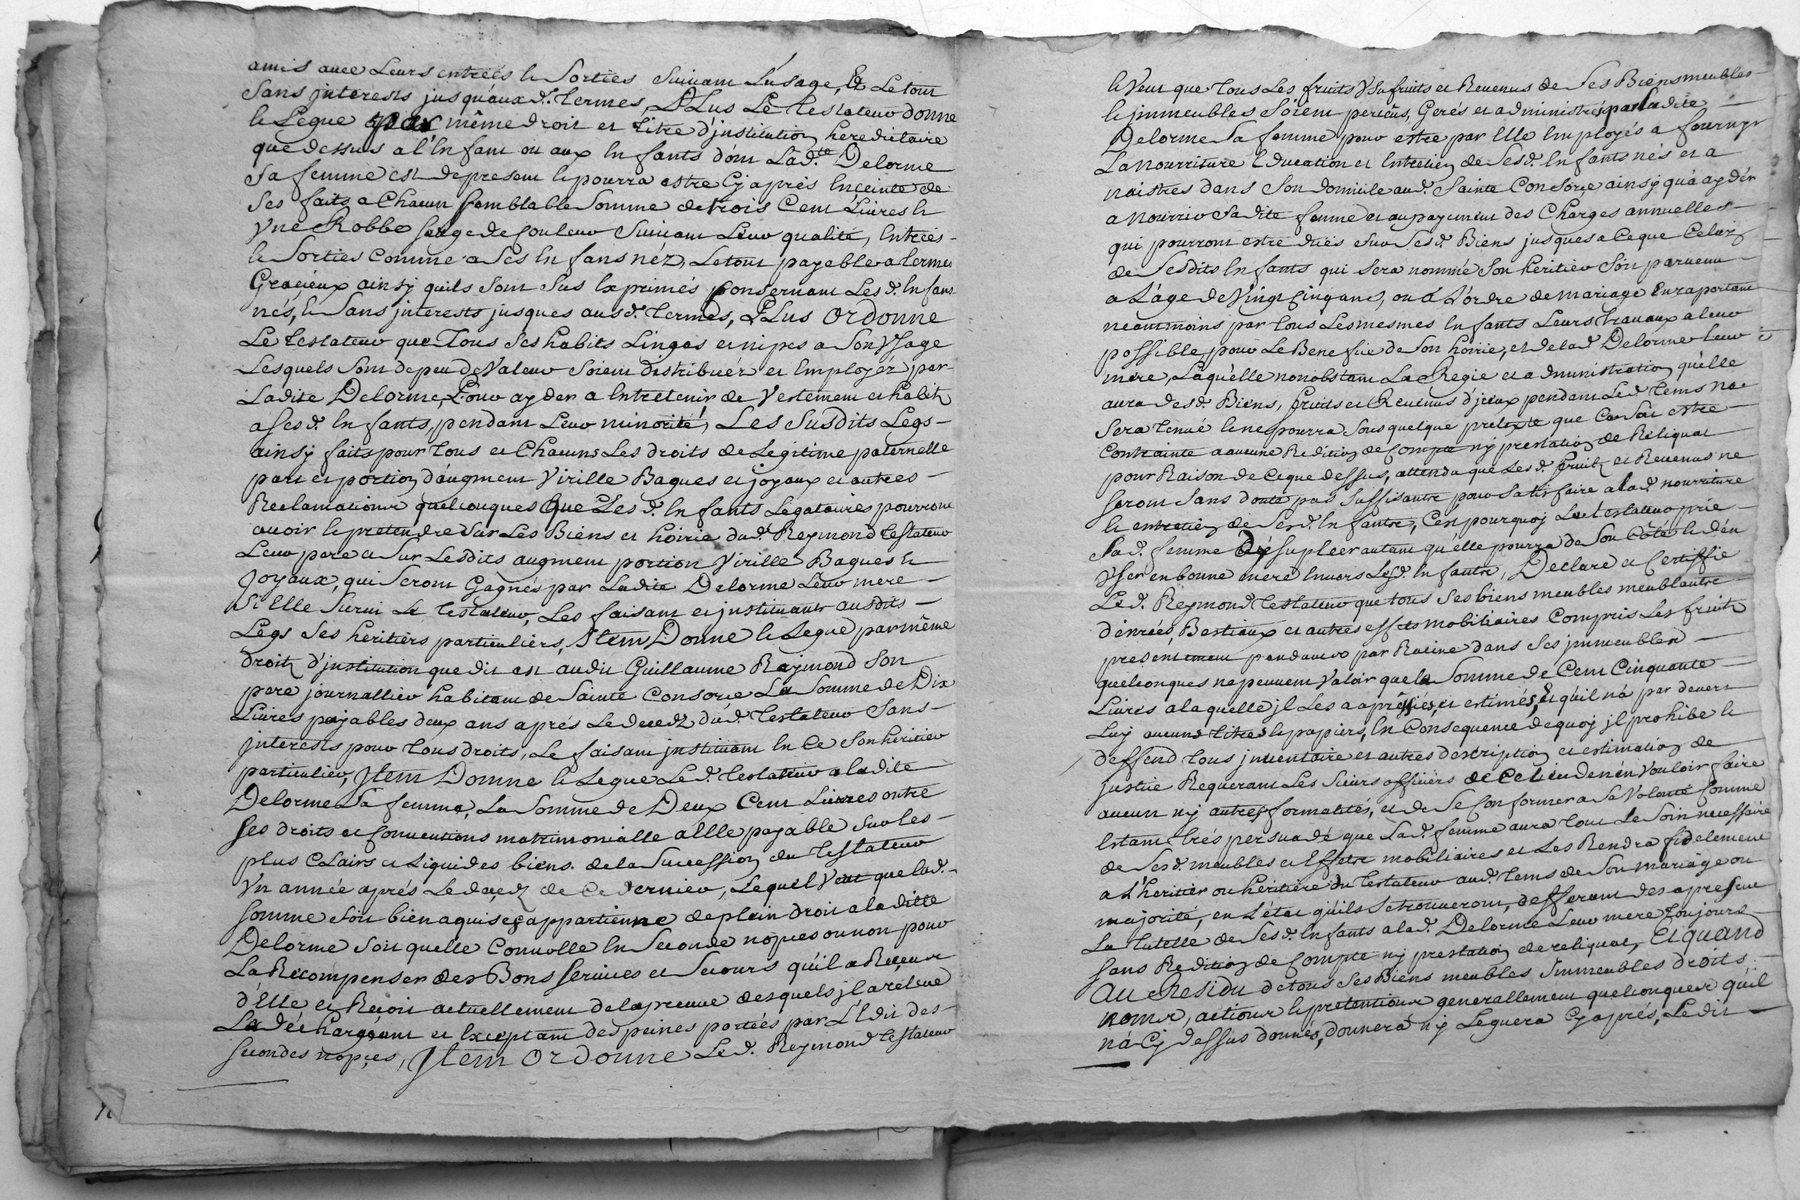 amis avec Leurs entrées & Sorties Suivant L'usage, Et Le tout
Sans jnterests jusqu'aux d. termes, PLus Le testateur donne
& Legue par même droit et titre d'jnstitution hereditaire
que dessus a l'Enfant ou aux Enfants dont Lad.te Delorme
Sa femme est de present & pourra estre Cy après Enceinte de
Ses faits a Chacun semblable Somme de trois Cent Livres &
Vne Robbe serge de Couleur Suivant Leur qualité, Entrées
& Sorties Comme a Ses Enfans néz, Le tout payable a termes
Gracieux ainsy quils sont sus Exprimés Concernant Les d. Enfans
nés, & Sans jnterests jusques aus d. termes, PLus Ordonne
Le testateur que Tous Ses habits Linges et nipes a Son Vsage
Lesquels Sont de peu de Valeur Soient distribuer et Employéz par
Ladite Delorme, Pour ayder a Entretenir de Vestement et habits
a Ses d. Enfants, pendant Leur minorité, Les Susdits Legs
ainsy faits pour tous et Chacuns Les droits de Legitime paternelle
part et portion d'augment Virille Bagues et joyaux et autres
Reclamations quelconques Que Les d. Enfants Legataires pourront
avoir & pretendre Sur Les Biens et hoirie dud. Reymond testateur
Leur pere et Sur Lesdits augment portion Virille Bagues &
Joyaux, qui Seront Gagnés par Ladite Delorme Leur mere
Si Elle Survi Le testateur, Les faisant et jnstituant ausdits
Legs Ses heritiers particuliers, Jtem Donne & Legue par même
droit d'jnstitution que dit est audit Guillaume Reymond Son
pere journallier habitant de Sainte Consorce La Somme de Dix
Livres payables deux ans aprés Le decedz dud. testateur Sans
jnterests pour tous droits, Le faisant jnstituant En Ce Son heritier
particulier, Jtem Donne & Legue Le d. testateur a ladite
Delorme Sa femme, La Somme de Deux Cent Livres outre
Ses droits et Conventions matrimonialle a Elle payable Sur Les
plus Clairs et Liquides biens de la Succession du testateur
Vn année aprés Le decedz de Ce dernier, Lequel Veut que lad.
somme Soit bien aquise & appartienne de plein droit a la ditte
Delorme Soit quelle Convolle En Seconde nopces ou non pour
La Recompenser des Bons services et Secours qu'il a Receue
d'Elle et Reçoit actuellement de la preuve desquels jl a reLeve
La déchargeant et Exceptant des peines portées par L'Edit des
secondes nopces, Jtem Ordonne Le d. Reymond testateur
& Veut que tous Les fruits Vsufruits et Revenus de Ses Biens meubles
& jmmeubles Soient perçus, Gerés et administrés par la dite
Delorme Sa femme pour estre par Elle Employés a fournyr
La nourriture Education et Entretien de Ses d. Enfants nés et a
naistres dans Son domicile aud. Sainte Consorce ainsy qu'a ayder
a nourrir Sa dite femme et au payement des Charges annuelles
qui pourront estre dües sur Ses d. Biens jusques a Ce que Celuy
de Sesdits Enfants qui sera nommé Son heritier Soit parvenu
a L'age de Vingt Cinq ans, ou a L'ordre de mariage En raportant
neantmoins par tous Les mesmes Enfants Leurs travaux a leur
possible, pour Le Benefice de Son hoirie, et de la d. Delorme Leur
mere, Laquelle nonobstant La Regie et administration qu'elle
aura des d. Biens, fruits et Revenus d'jceux pendant Led. tems ne
Sera tenue & ne pourra Sous quelque pretexte que Ce Soit estre
Contrainte a aucune Redition de Compte ny prestation de Reliquat
pour Raison de Ce que dessus, attendu que Les d. fruits et Revenus ne
seront Sans doute pas suffisants pour Satisfaire a la d. nourriture
& entretien de Ses d. Enfants, C'est pourquoy Le testateur prie
Sa d. femme d'y supleer autant qu'elle pourra de Son Coté & d'en
Vser en bonne mere Envers Les d. Enfants, Declare et Certiffie
Le d. Reymond testateur que tous Ses biens meubles meublants
d'enrées, Bestiaux et autres effets mobiliaires Compris Les fruits
presentement pendants par Racine dans Ses jmmeubles
quelconques ne peuvent Valoir que la Somme de Cent Cinquante
Livres a laquelle jl Les a apréciés, et estimés, Et qu'il n'a par devers
Luy aucuns titres & papiers, En Consequence de quoy jl prohibe &
deffend tous jnventaire et autres description et estimation de
justice Requerant Les Sieurs officiers de Ce Lieu de n'en Vouloir faire
aucun ny autres formalités, et de Se Conformer a Sa Volonté Comme
Estant trés persuadé que Sa d. femme aura tout Le Soin necessaire
de Ses d. meubles et Effets mobiliaires et Les Rendra fidelement
a L'heritier ou heritiere du testateur aud. tems de Son mariage ou
majorité, en L'état qu'ils Se trouveront, defferant des apresent
La tutelle de Ses d. Enfants a la d. Delorme Leur mere toujours
sans Redition de Compte ny prestation de reliquat, Et quand
Au Residu de tous Ses Biens meubles Jmmeubles droits
noms, actions & pretentions generallement quelconques qu'il
n'a Cy dessus donnés, donnera ny Leguera Cy aprés, Ledit